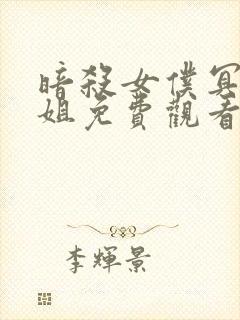 暗殺女僕冥
姐免費觀看
李輝景